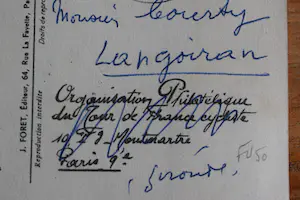 Monsieur Courty
Langoiran
Organisation Philatélique
du Tour de France cycliste
10 Bd Montmartre
Paris 9e
Gironde
J. FORET, Éditeur, 64, Rue La Fayette, Par
Reproduction interdite
Droits de repro